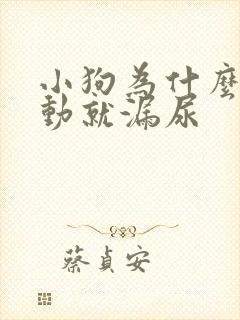 小狗為什麼
動就漏尿
蔡貞安